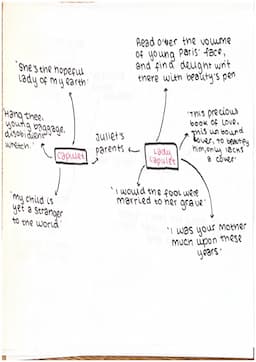 Read other the volume
of young Paris' face,
and find delight writ
there with beauty's pen
'She's the hopeful
lady of my earth'
'Hang thee,
young baggage,
disobidient
wretch.'
'This precious
book of love,
this unbound
lover, to beautify
him, only lacks
a cover'
Juliet's
parents
Capulet
Lady
Capulet
'I would the fool were
married to her grave'
'my child is
yet a stranger
to the world'
'I was your mother
much upon these
years'